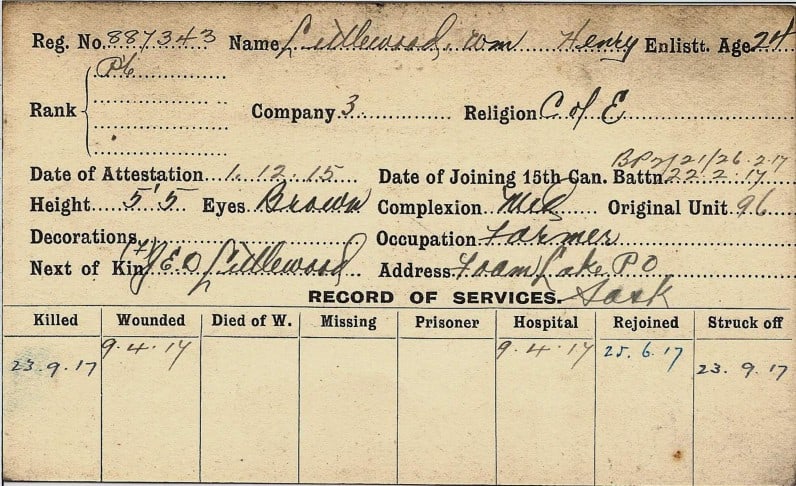 Reg. No. 887343 Name Littlewood, Wm Henry Enlistt. Age 24
Pte
Rank Company 3 Religion C of E
21/26.2.17
Date of Attestation 1.12.15 Date of Joining 15th Can. Battn 22.2.17
Height 5'5 Eyes Brown Complexion Med Original Unit 96
Decorations Occupation Farmer
Next of Kin (F) Geo Littlewood Address Foam Lake P.O
RECORD OF SERVICES. Sask
Killed Wounded Died of W. Missing Prisoner Hospital Rejoined Struck off
23.9.17 9.4.17 9.4.17 25.6.17 23.9.17